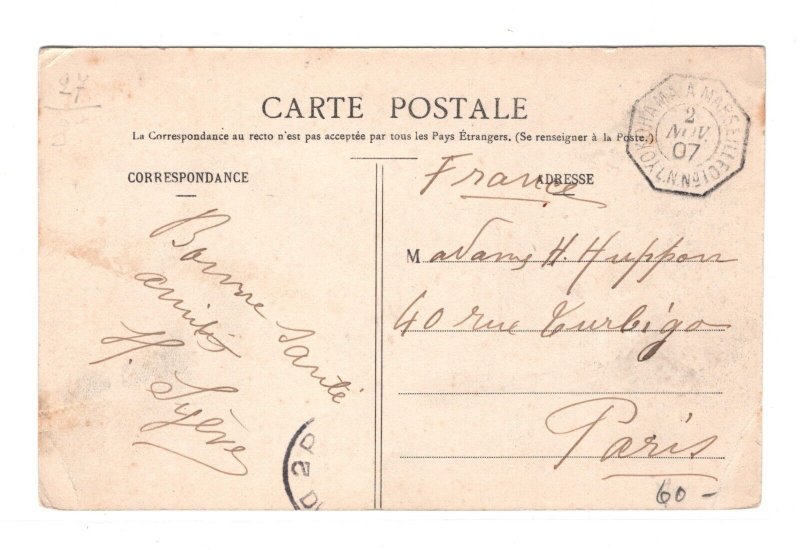 27
CARTE POSTALE
La Correspondance au recto n'est pas acceptée par tous les Pays Étrangers. (Se renseigner à la Poste.)
YOKOHAMA A MARSEILLE
2
NOV.
07
CORRESPONDANCE
ADRESSE
France
Bonne santé
amitiés
H.
Madame H. Huppon
40 rue Turbigo
Paris
2 P
60 -